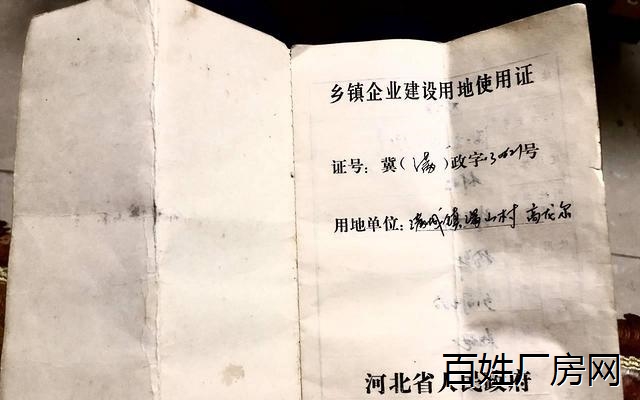 乡镇企业建设用地使用证
证号: 冀(满)政字 号
用地单位: 满城镇 山村
河北省人民政府
百姓厂房网